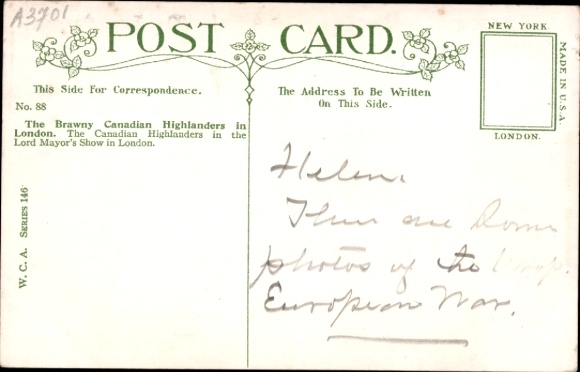 A3701
POST CARD.
NEW YORK
MADE IN U.S.A.
LONDON.
This Side For Correspondence.
The Address To Be Written
On This Side.
No. 88
The Brawny Canadian Highlanders in
London. The Canadian Highlanders in the
Lord Mayor's Show in London.
W. C. A. SERIES 146
Helen.
are Some
photos of the
European War.